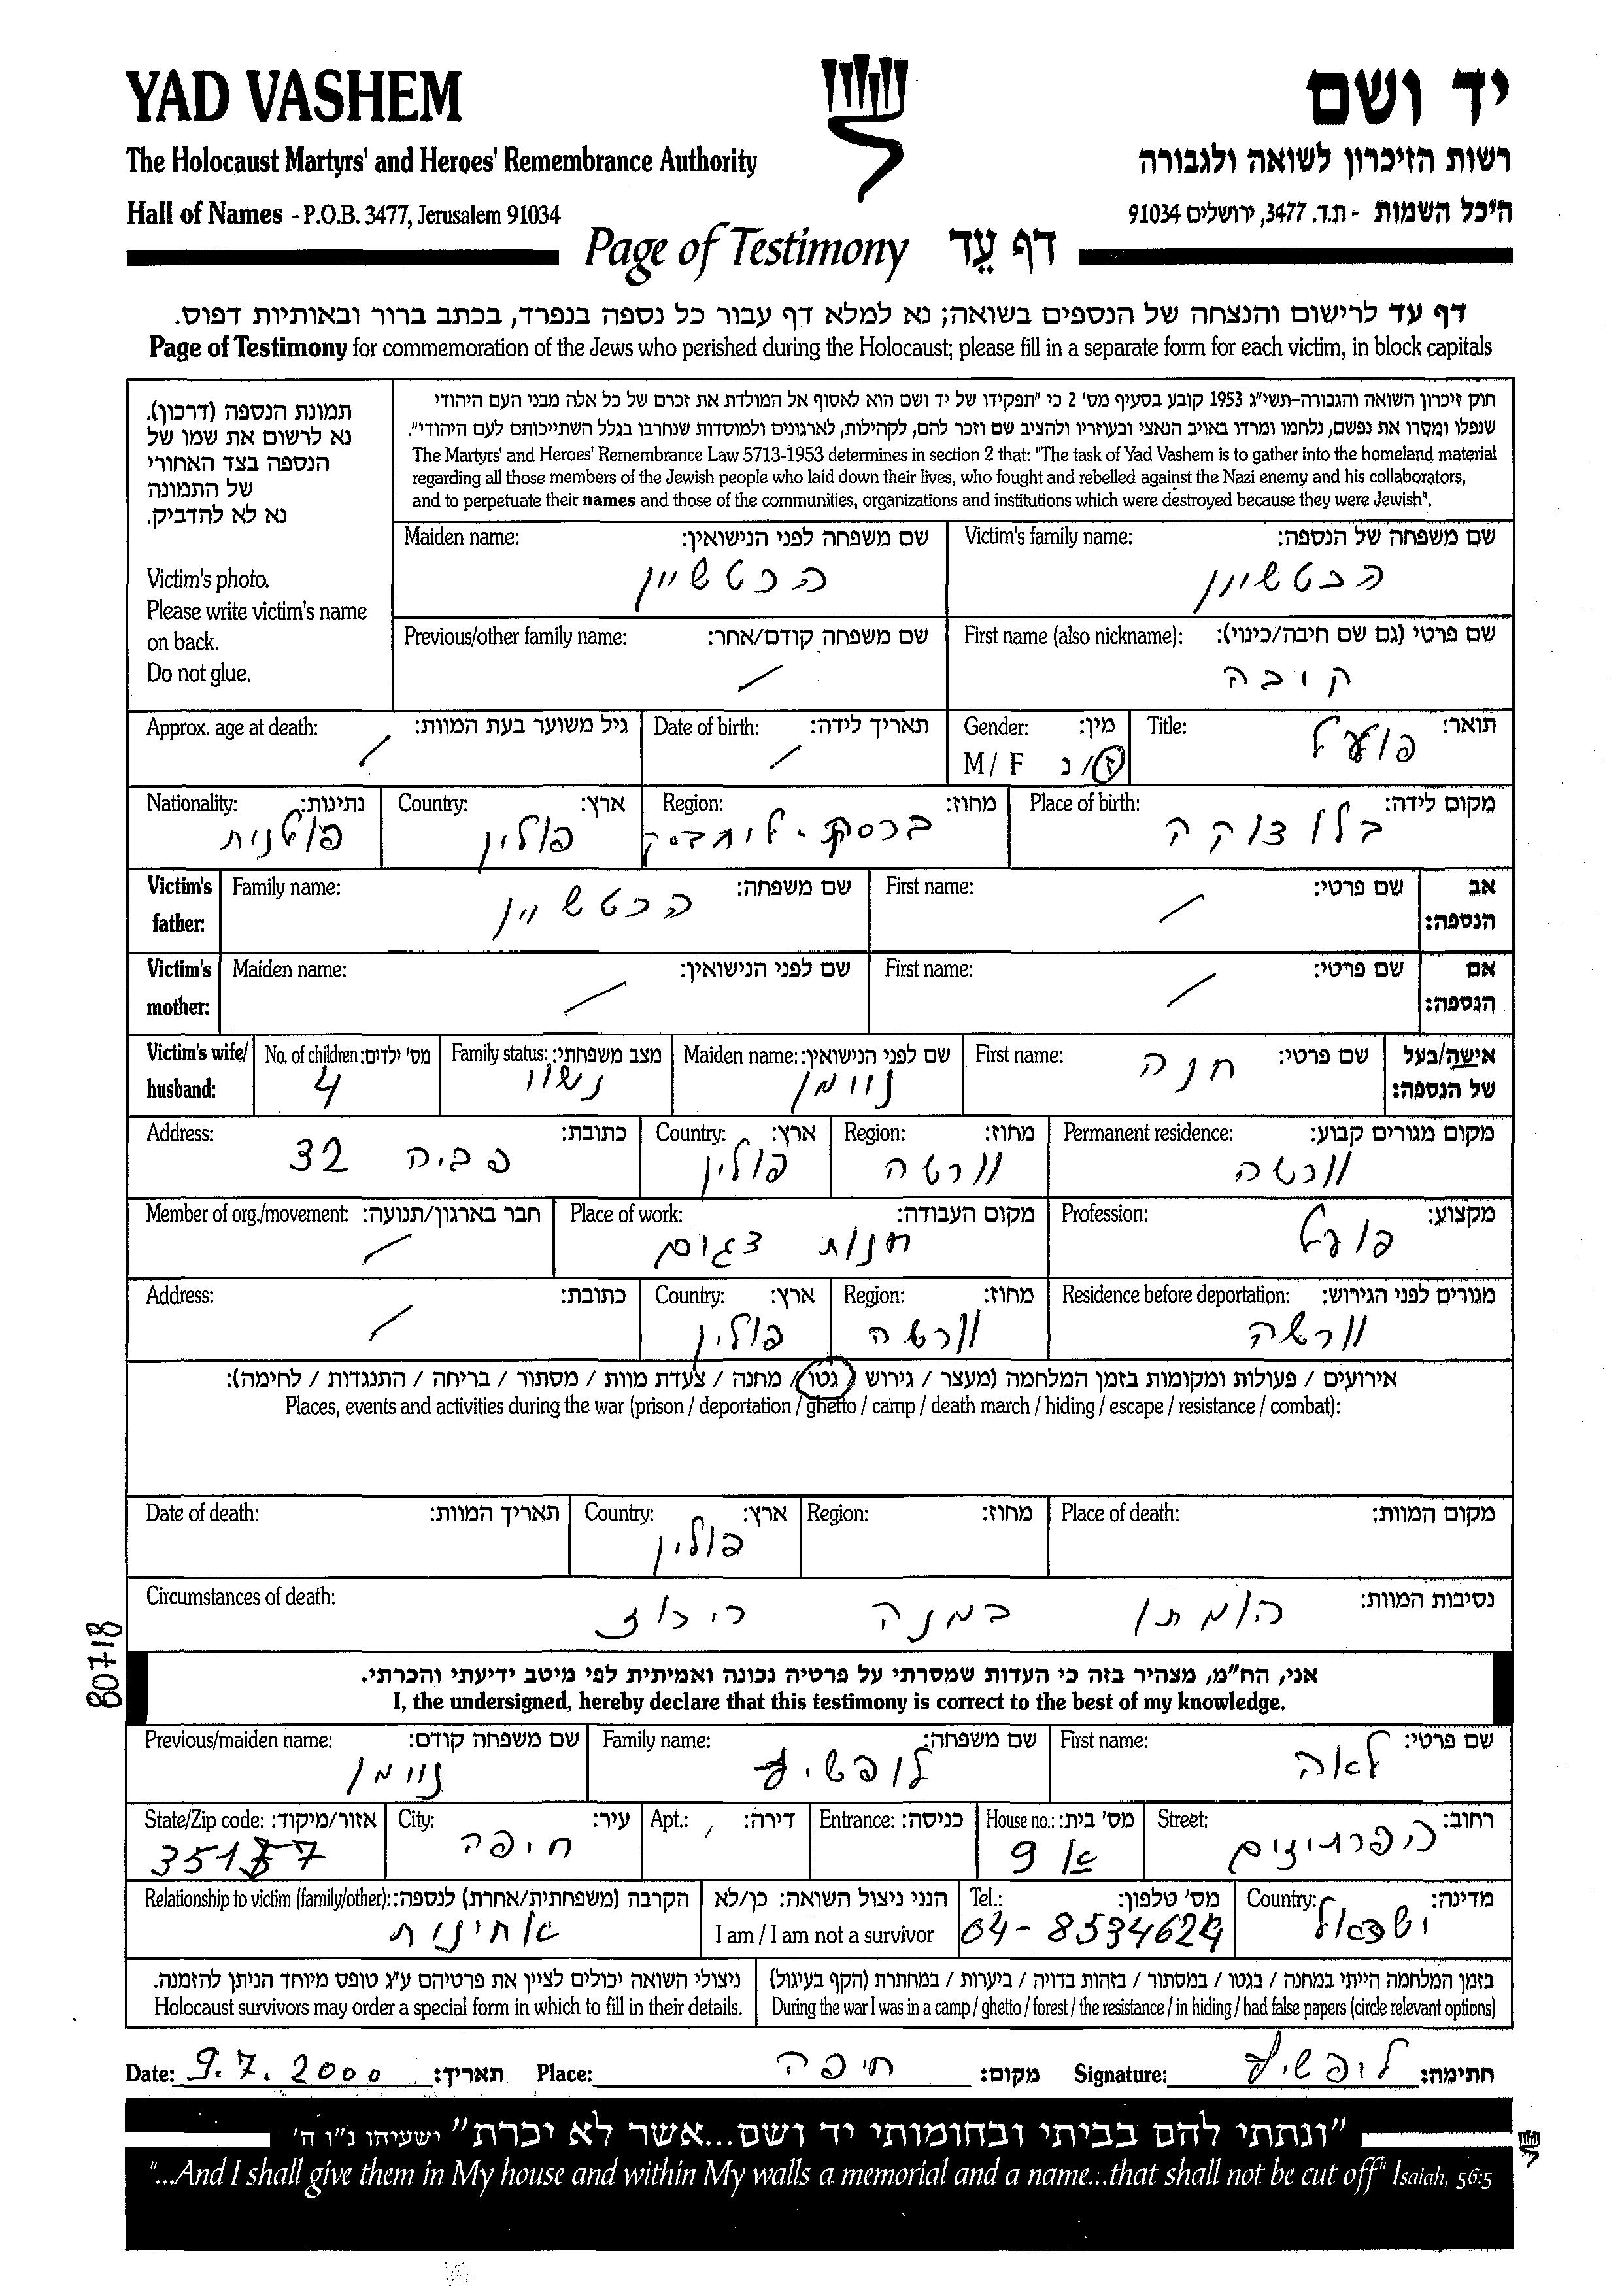 YAD VASHEM
יד ושם
The Holocaust Martyrs' and Heroes' Remembrance Authority
רשות הזיכרון לשואה ולגבורה
Hall of Names - P.O.B. 3477, Jerusalem 91034
היכל השמות - ת.ד. 3477, ירושלים 91034
Page of Testimony דף עֵד
דף עד לרישום והנצחה של הנספים בשואה; נא למלא דף עבור כל נספה בנפרד, בכתב ברור ובאותיות דפוס.
Page of Testimony for commemoration of the Jews who perished during the Holocaust; please fill in a separate form for each victim, in block capitals
תמונת הנספה (דרכון).
נא לרשום את שמו של
הנספה בצד האחורי
של התמונה
נא לא להדביק.
Victim's photo.
Please write victim's name
on back.
Do not glue.
חוק זיכרון השואה והגבורה-תשי״ג 1953 קובע בסעיף מס' 2 כי "תפקידו של יד ושם הוא לאסוף אל המולדת את זכרם של כל אלה מבני העם היהודי
שנפלו ומסרו את נפשם, נלחמו ומרדו באויב הנאצי ובעוזריו ולהציב שם וזכר להם, לקהילות, לארגונים ולמוסדות שנחרבו בגלל השתייכותם לעם היהודי".
The Martyrs' and Heroes' Remembrance Law 5713-1953 determines in section 2 that: "The task of Yad Vashem is to gather into the homeland material
regarding all those members of the Jewish people who laid down their lives, who fought and rebelled against the Nazi enemy and his collaborators,
and to perpetuate their names and those of the communities, organizations and institutions which were destroyed because they were Jewish".
Victim's family name: שם משפחה של הנספה:
הכטשיין
Maiden name: שם משפחה לפני הנישואין:
הכטשיין
First name (also nickname): שם פרטי (גם שם חיבה/כינוי):
קובה
Previous/other family name: שם משפחה קודם/אחר:
/
Title: תואר:
פועל
Gender: מין:
M / F ז/נ
Date of birth: תאריך לידה:
/
Approx. age at death: גיל משוער בעת המוות:
/
Place of birth: מקום לידה:
Region: מחוז:
Country: ארץ:
פולין
Nationality: נתינות:
פולנית
Victim's father: אב הנספה:
First name: שם פרטי:
/
Family name: שם משפחה:
הכטשיין
Victim's mother: אם הנספה:
First name: שם פרטי:
/
Maiden name: שם לפני הנישואין:
/
Victim's wife/ husband: אישה/בעל של הנספה:
First name: שם פרטי:
חנה
Maiden name: שם לפני הנישואין:
נוימן
Family status: מצב משפחתי:
נשוי
No. of children: מס' ילדים:
4
Permanent residence: מקום מגורים קבוע:
וורשה
Region: מחוז:
וורשה
Country: ארץ:
פולין
Address: כתובת:
פביה 32
Profession: מקצוע:
פועל
Place of work: מקום העבודה:
חנות דגים
Member of org./movement: חבר בארגון/תנועה:
/
Residence before deportation: מגורים לפני הגירוש:
וורשה
Region: מחוז:
וורשה
Country: ארץ:
פולין
Address: כתובת:
/
אירועים / פעולות ומקומות בזמן המלחמה (מעצר / גירוש / גטו / מחנה / צעדת מוות / מסתור / בריחה / התנגדות / לחימה):
Places, events and activities during the war (prison / deportation / ghetto / camp / death march / hiding / escape / resistance / combat):
Place of death: מקום המוות:
Region: מחוז:
Country: ארץ:
פולין
Date of death: תאריך המוות:
Circumstances of death: נסיבות המוות:
הומתו במחנה ריכוז
80718
אני, הח״מ, מצהיר בזה כי העדות שמסרתי על פרטיה נכונה ואמיתית לפי מיטב ידיעתי והכרתי.
I, the undersigned, hereby declare that this testimony is correct to the best of my knowledge.
First name: שם פרטי:
לאה
Family name: שם משפחה:
לופשיץ
Previous/maiden name: שם משפחה קודם:
נוימן
Street: רחוב:
הפרטיזנים
House no.: מס' בית:
9 א
Entrance: כניסה:
Apt.: דירה:
City: עיר:
חיפה
State/Zip code: אזור/מיקוד:
Country: מדינה:
ישראל
Tel.: מס' טלפון:
04-8534624
הנני ניצול השואה: כן/לא
I am / I am not a survivor
Relationship to victim (family/other): הקרבה (משפחתית/אחרת) לנספה:
אחינות
בזמן המלחמה הייתי במחנה / בגטו / במסתור / בזהות בדויה / ביערות / במחתרת (הקף בעיגול)
During the war I was in a camp / ghetto / forest / the resistance / in hiding / had false papers (circle relevant options)
ניצולי השואה יכולים לציין את פרטיהם ע״ג טופס מיוחד הניתן להזמנה.
Holocaust survivors may order a special form in which to fill in their details.
Date: 9.7.2000 תאריך: Place: חיפה מקום: Signature: לופשיץ חתימה:
"ונתתי להם בביתי ובחומותי יד ושם...אשר לא יכרת" ישעיהו נ״ו ה'
"...And I shall give them in My house and within My walls a memorial and a name...that shall not be cut off" Isaiah, 56:5